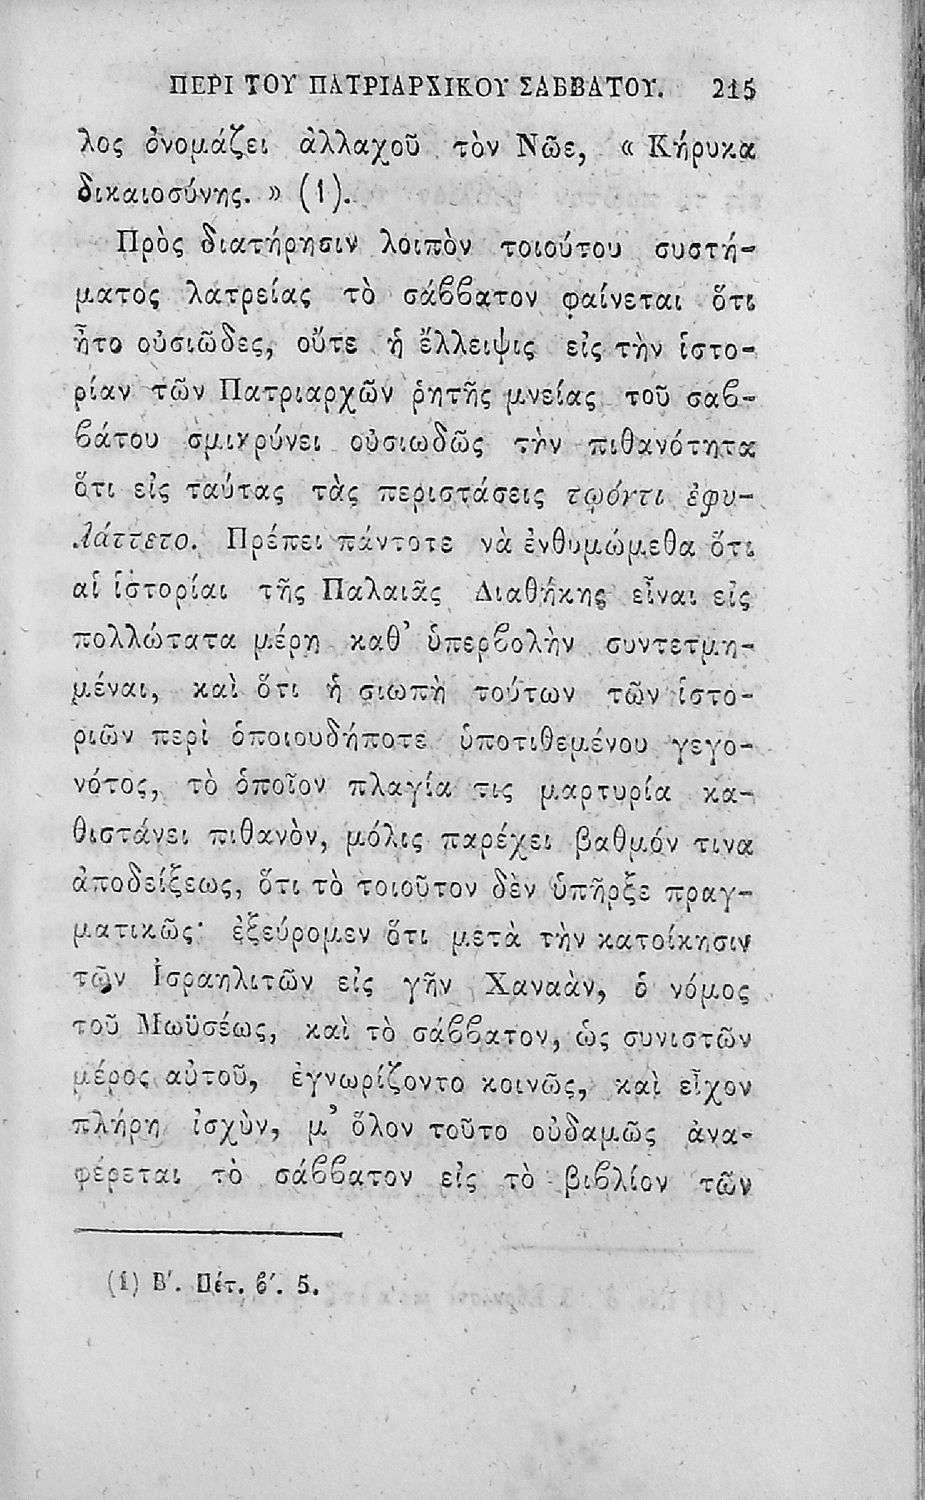 ΠΕΡΙ ΤΟΥ ΠΑΤΡΙΑΡΧΙΚΟΥ ΣΑΒΒΑΤΟΥ. 215
λος ὀνομάζει ἀλλαχοῦ τὸν Νῶε, « Κήρυκα
δικαιοσύνης. » (1).
Πρὸς διατήρησιν λοιπὸν τοιούτου συστή-
ματος λατρείας τὸ σάββατον φαίνεται ὅτι
ἦτο οὐσιῶδες, οὔτε ἡ ἔλλειψις εἰς τὴν ἱστο-
ρίαν τῶν Πατριαρχῶν ῥητῆς μνείας τοῦ σαβ-
βάτου σμικρύνει οὐσιωδῶς τὴν πιθανότητα
ὅτι εἰς ταύτας τὰς περιστάσεις τῳόντι ἐφυ-
λάττετο. Πρέπει πάντοτε νὰ ἐνθυμώμεθα ὅτι
αἱ ἱστορίαι τῆς Παλαιᾶς Διαθήκης εἶναι εἰς
πολλώτατα μέρη καθ’ ὑπερβολὴν συντετμη-
μέναι, καὶ ὅτι ἡ σιωπὴ τούτων τῶν ἱστο-
ριῶν περὶ ὁποιουδήποτε ὑποτιθεμένου γεγο-
νότος, τὸ ὁποῖον πλαγία τις μαρτυρία κα-
θιστάνει πιθανὸν, μόλις παρέχει βαθμόν τινα
ἀποδείξεως, ὅτι τὸ τοιοῦτον δὲν ὑπῆρξε πραγ-
ματικῶς· ἐξεύρομεν ὅτι μετὰ τὴν κατοίκησιν
τῶν Ἰσραηλιτῶν εἰς γῆν Χαναὰν, ὁ νόμος
τοῦ Μωϋσέως, καὶ τὸ σάββατον, ὡς συνιστῶν
μέρος αὐτοῦ, ἐγνωρίζοντο κοινῶς, καὶ εἶχον
πλήρη ἰσχὺν, μ’ ὅλον τοῦτο οὐδαμῶς ἀνα-
φέρεται τὸ σάββατον εἰς τὸ βιβλίον τῶν
(1) Β′. Πέτ. β′. 5.